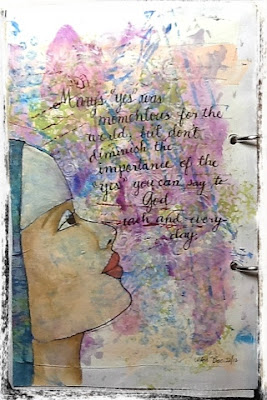 Mary's "yes" was
momentous for the
world, but don't
diminish the
importance of the
"yes" you can say to
God
each and every
day.